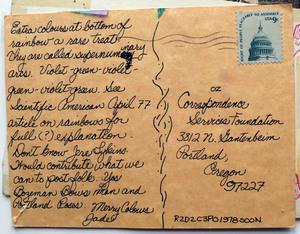 Extra colours at bottom of
rainbow a rare treat.
They are called supernumerary
arcs. Violet-green-violet-
green-violet-green. See
Scientific American April 77
article on rainbows for
full (?) explanation.
Don't know Jere
Would contribute what we
can to postfolk. Yes
Bozeman Blows Man and
Portland Roses.
Merry Colours
Jade
USA 9c
OZ
Correspondence
Services Foundation
3812 N. Gantenbein
Portland,
Oregon
97227
R2D2C3PO1978SOON